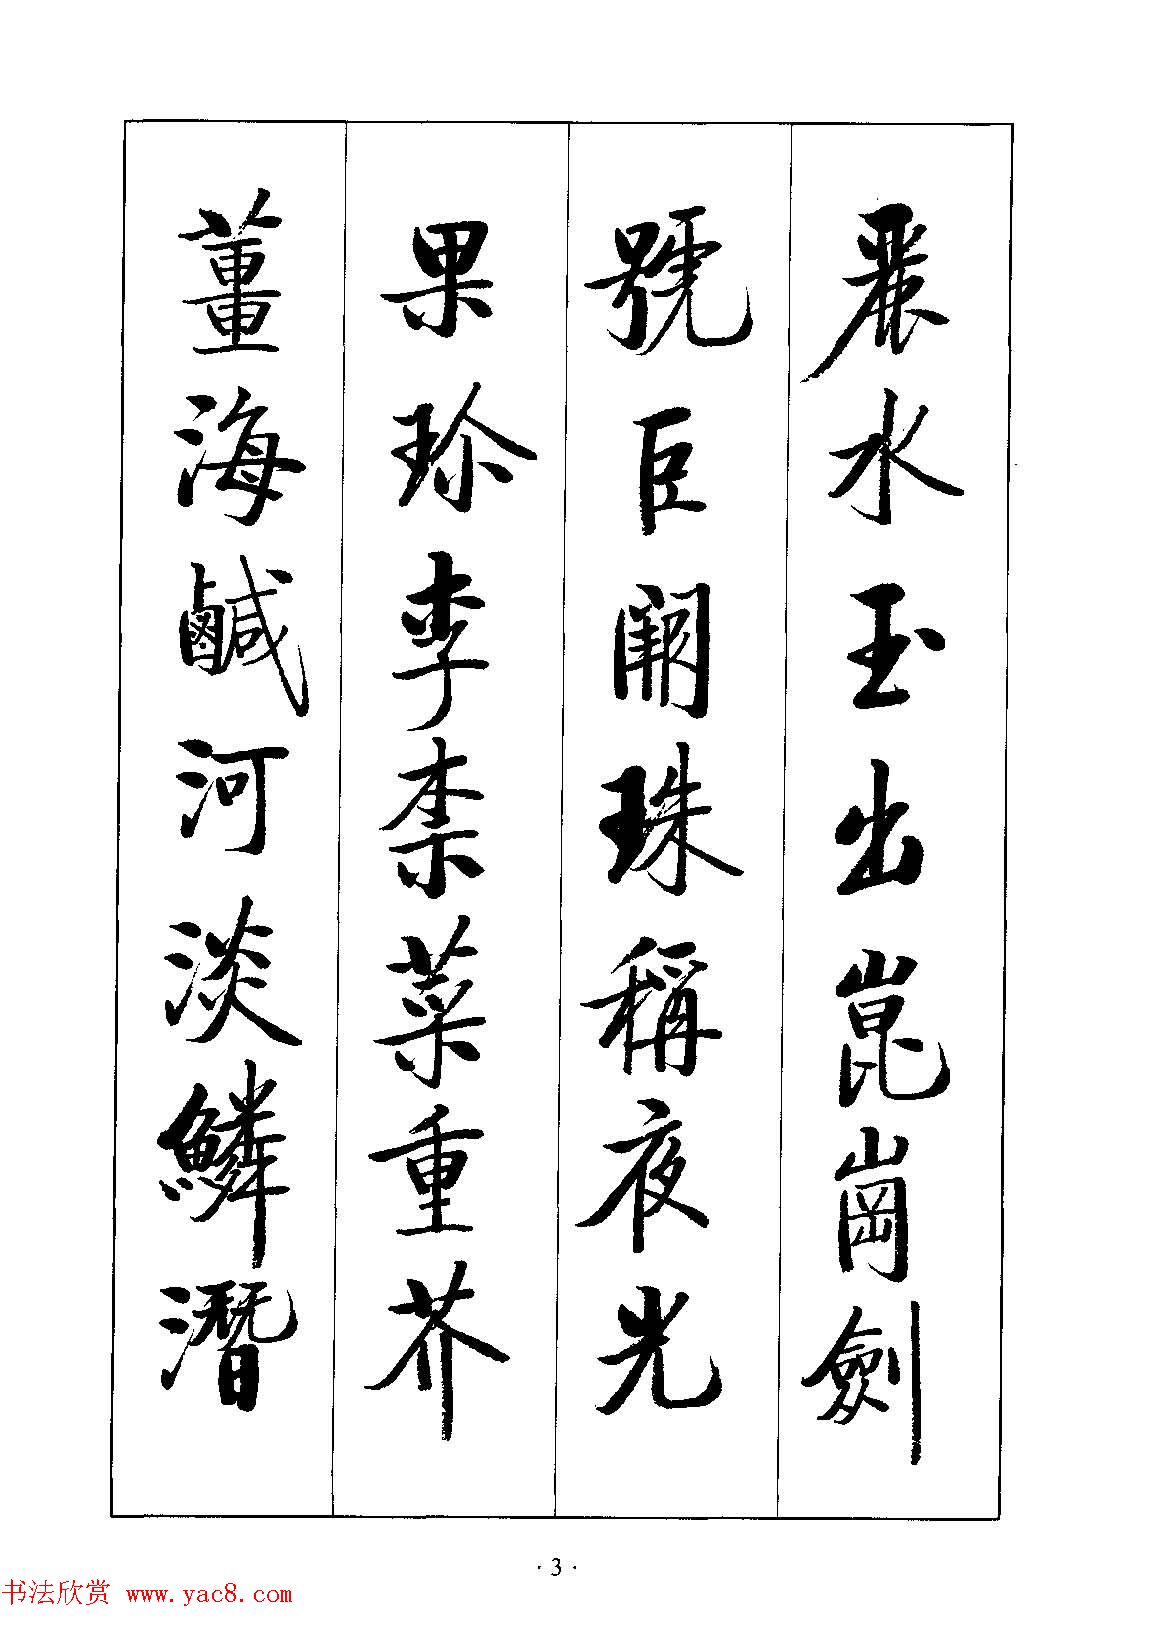 麗水玉出崑崗劍
號巨闕珠稱夜光
果珍李柰菜重芥
薑海鹹河淡鱗潛
·3·
书法欣赏 www.yac8.com